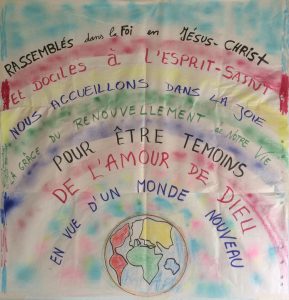 RASSEMBLÉS dans la Foi en JÉSUS-CHRIST
ET DOCILES À L'ESPRIT-SAINT
NOUS ACCUEILLONS DANS LA JOIE
LA GRÂCE DU RENOUVELLEMENT DE NOTRE VIE
POUR ÊTRE TEMOINS
DE L'AMOUR DE DIEU
EN VUE D'UN MONDE NOUVEAU